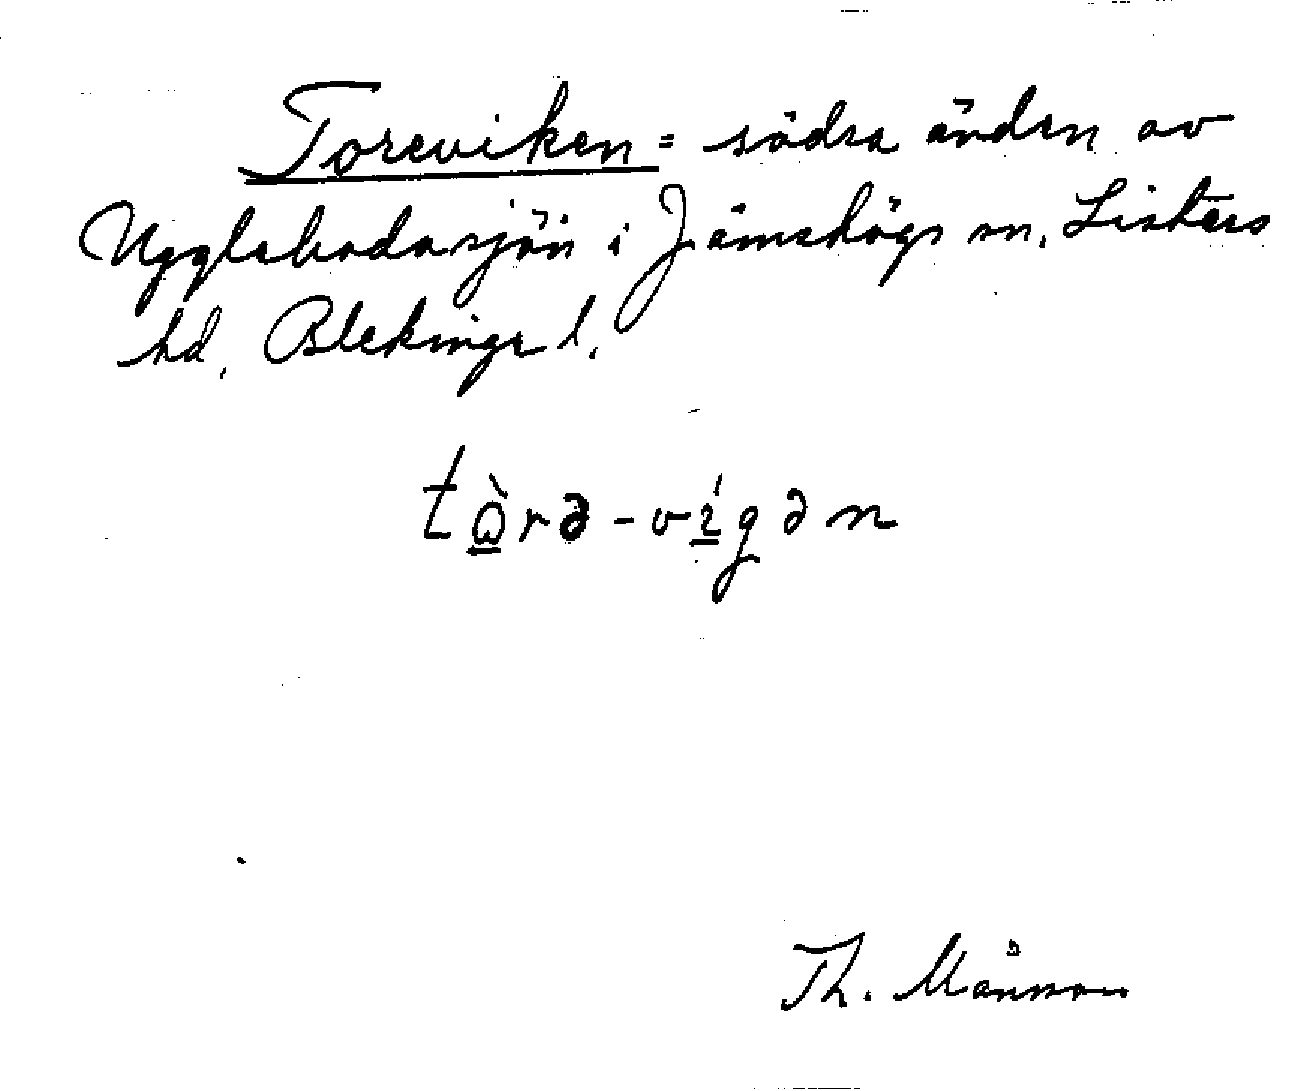 Toreviken = södra änden av
Ugglebodasjön i Jämshögs sn, Listers
hd, Blekinge l.
tὼ̱rə-ví̱gən
Th. Månsson